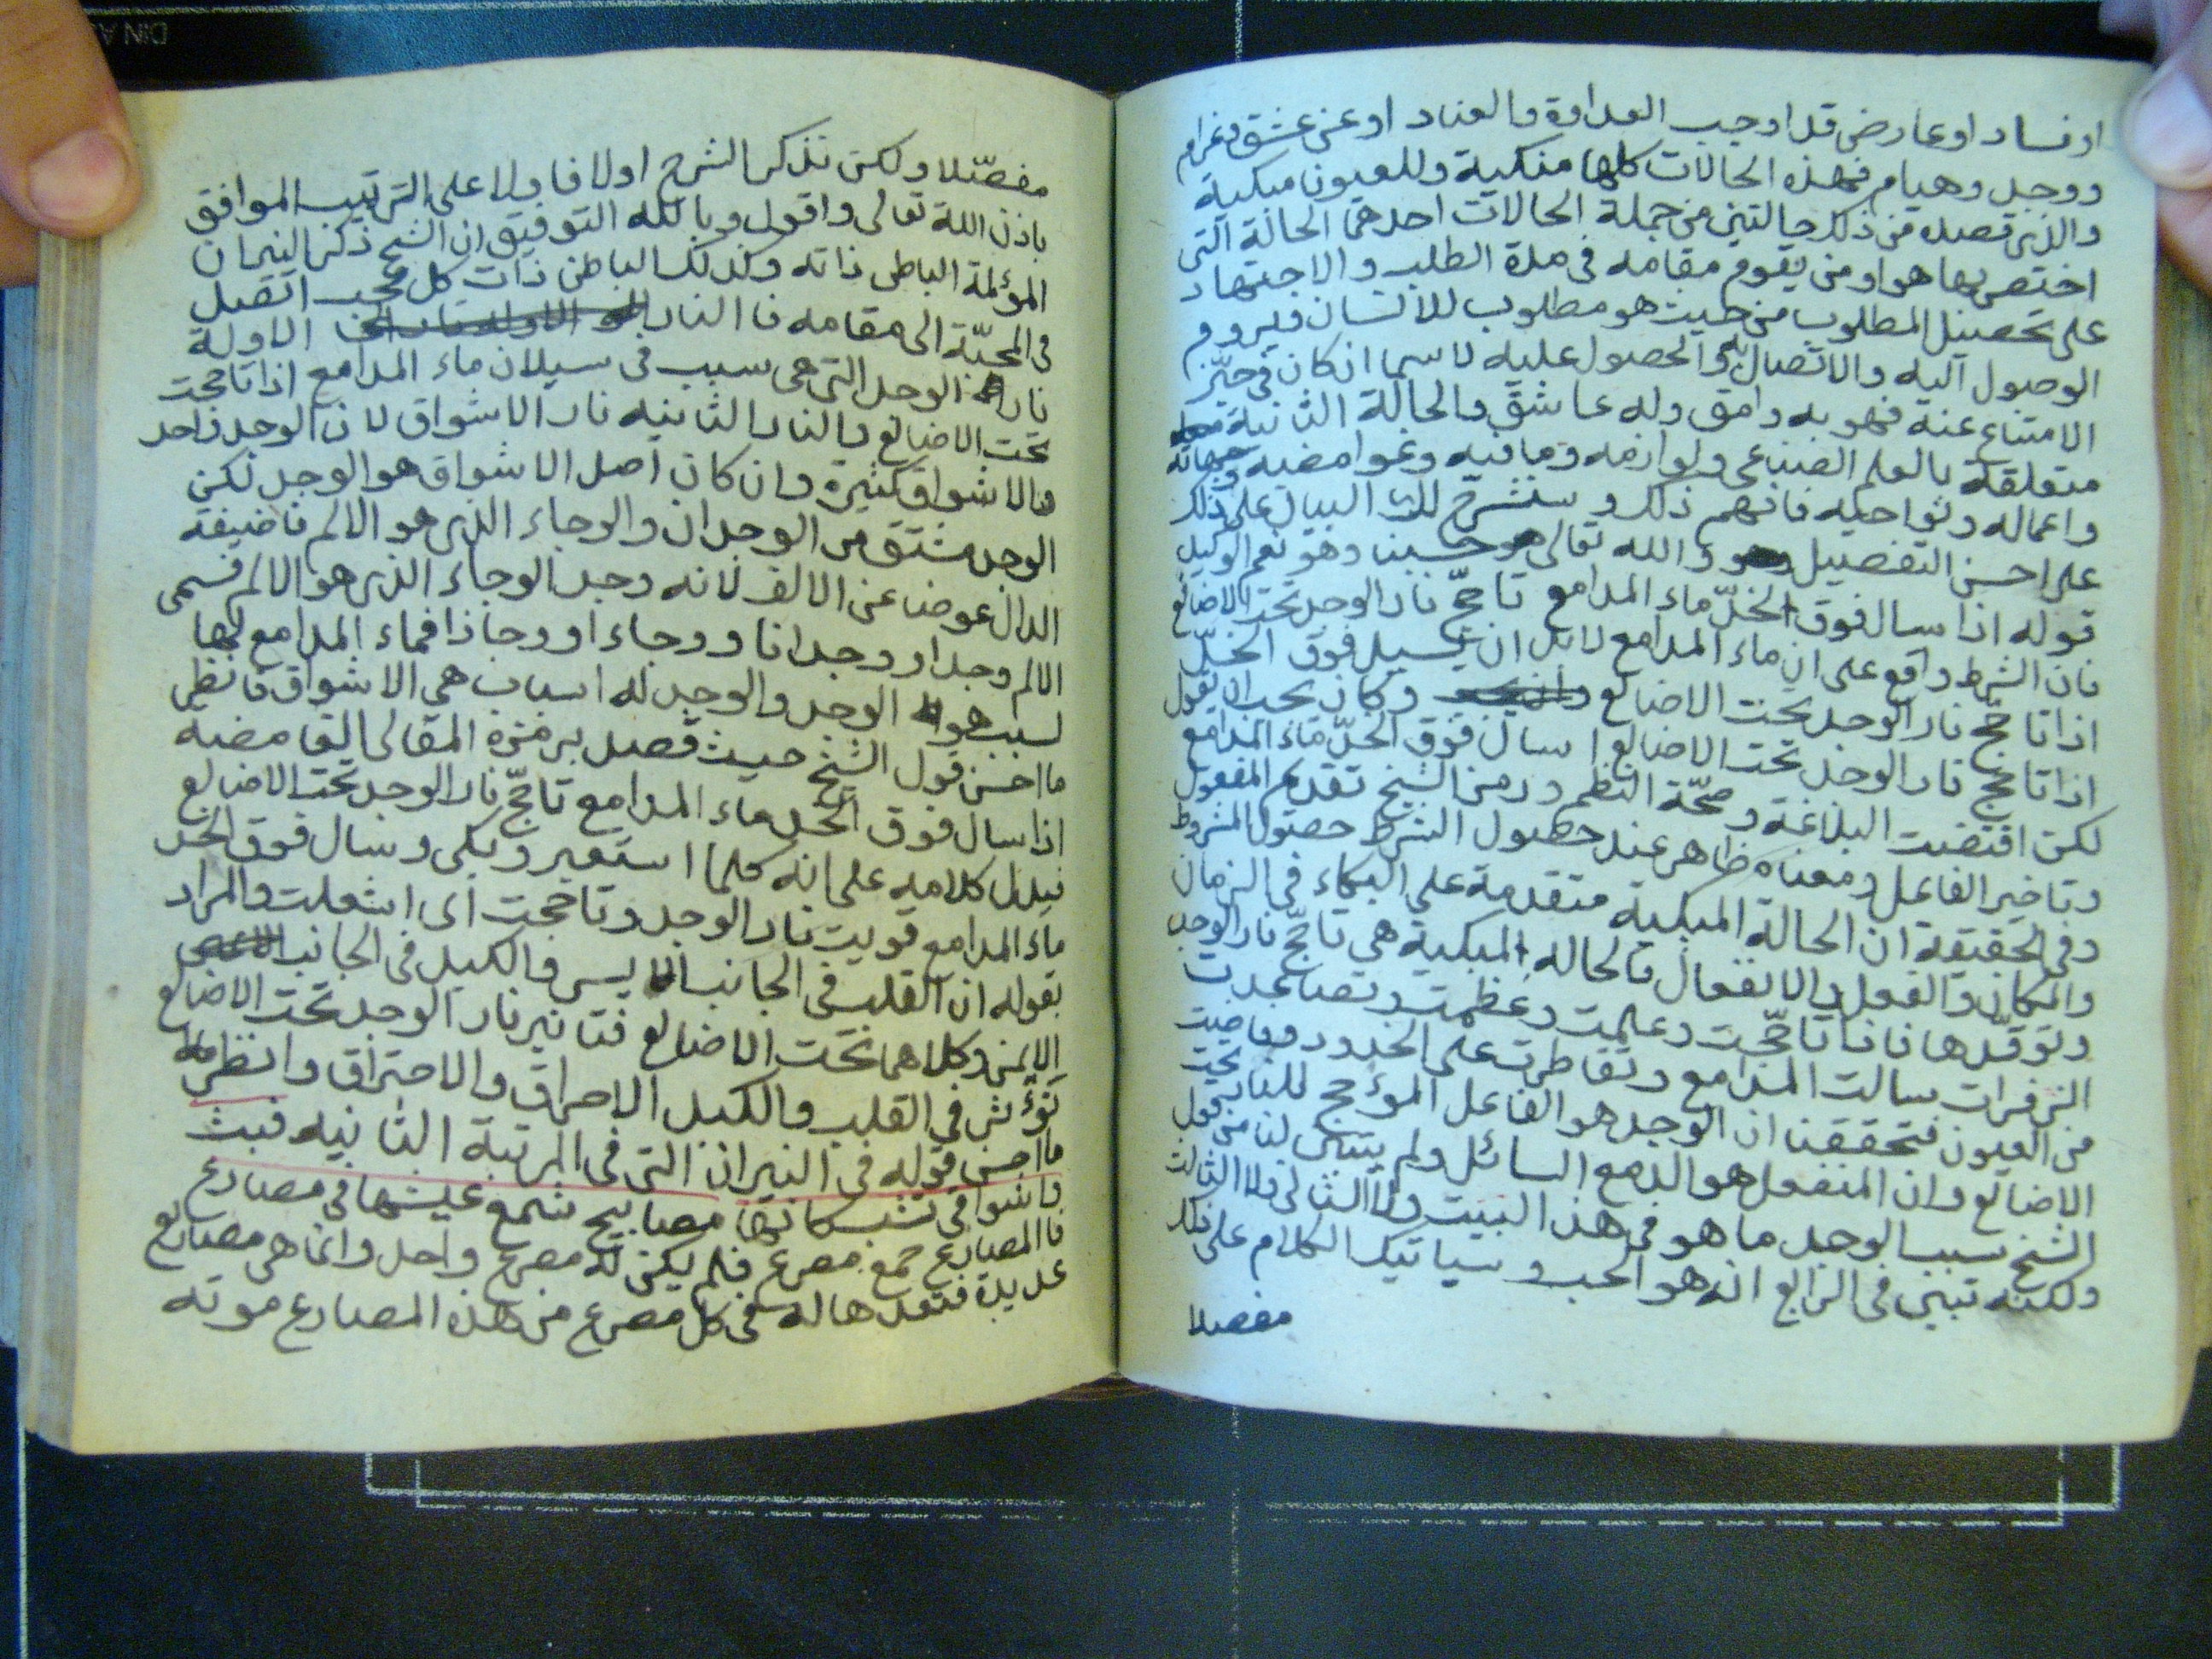 او فساد او عارض قد اوجب العداوة والعناد او عن عشق وغرام
ووجد وهيام فهذه الحالات كلها منكية وللعيون مبكية
والذي قصده من ذلك حالتين من جملة الحالات احدهما الحالة التي
اختص بها هو او من يقوم مقامه في مدة الطلب والاجتهاد
على تحصيل المطلوب من حيث هو مطلوب للانسان فيروم
الوصول اليه والاتصال به والحصول عليه لا سيما ان كان في حيّز
الامتناع عنه فهو به وامق وله عاشق والحالة الثانية
متعلقة بالعلم الصناعي ولوازمه وما فيه وغوامضه وجهاته
واعماله ونواحيه فافهم ذلك و سنشرح لك البيان على ذلك
على احسن التفصيل والله تعالى هو حسبنا وهو نعم الوكيل
قوله اذا سال فوق الخدّ ماء المدامع تاجّج نار الوجد تحت الاضالع
فان الشرط واقع على ان ماء المدامع لابد ان يسيل فوق الخدّ
اذا تاجّج نار الوجد تحت الاضالع وكان يجب ان يقول
اذا تاجج نار الوجد تحت الاضالع سال فوق الخدّ ماء المدامع
لكن اقتضت البلاغة وصحّة النظم ورمز الشيخ تقديم المفعول
وتاخير الفاعل ومعناه ظاهر عند حصول الشرط حصول المشروط
وفي الحقيقة ان الحالة المبكية متقدمة على البكاء في الزمان
والمكان والفعل والانفعال فالحاله المبكية هي تاجّج نار الوجد
وتوقّدها فاذا تاجّجت وعلمت وعظمت وتصاعدت
الزفرات سالت المدامع وتقاطرت على الخدود وفاضت
من العيون فتحققنا ان الوجد هو الفاعل المؤجج للنار تحت
الاضالع وان المنفعل هو الدمع السائل ولم يتبين لنا من قول
الشيخ سبب الوجد ما هو في هذا البيت ولا الثاني ولا الثالث
ولكنه تبين في الرابع انه هو الحب وسياتيك الكلام على ذلك
مفصلا
مفصّلا ولكن نذكر الشرح اولا فاولا على الترتيب الموافق
باذن الله تعالى واقول وبالله التوفيق ان الشيخ ذكر النيران
المؤلمة الباطن ذاته وكذلك الباطن ذات كل محب اتصل
في المحبّة الى مقامه فالنار الاولة
نار الوجد التي هي سبب في سيلان ماء المدامع اذا تاججت
تحت الاضالع والنار الثانيه نار الاشواق لان الوجد واحد
والاشواق كثيرة وان كان اصل الاشواق هو الوجد لكن
الوجد مشتق من الوجدان والوجاء الذي هو الالم فاضيفة
الدال عوضا عن الالف لانه وجد الوجاء الذي هو الالم فسمى
الالم وجدا ووجدانا ووجاء او وجاذا فماء المدامع لها
سبب هو الوجد والوجد له اسباب هي الاشواق فانظر
ما احسن قول الشيخ حيث فصل برمزه المقالى الغامضه
اذا سال فوق الخد ماء المدامع تاجّج نار الوجد تحت الاضالع
فيدل كلامه على انه كلما استعبر وبكى وسال فوق الخد
ماء المدامع قويت نار الوجد وتاججت اى اشعلت والمراد
بقوله ان القلب في الجانب الايسر والكبد في الجانب
الايمن وكلاهما تحت الاضالع فتاثير نار الوجد تحت الاضالع
تؤثر في القلب والكبد الاحراق والاحتراق وانظر
ما احسن قوله في النيران التي في المرتبة الثانيه فبث
واشواقي تشب كانها مصابيح شمع عيشها في مصارع
فالمصارع جمع مصرع فلم يكن له مصرع واحد وانما هي مصارع
عديدة فتعددها له ففي كل مصرع من هذه المصارع موته